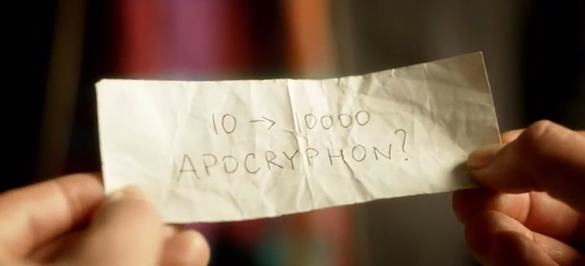 10 → 10000
APOCRYPHON?